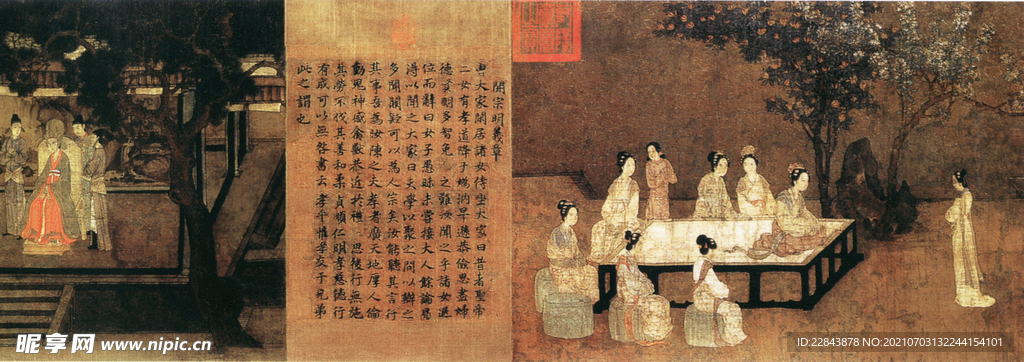 開宗明義章
曹大家閒居諸女侍坐大家曰昔者聖帝
二女有孝道降于媯汭卑遜恭儉思盡婦
德賢明多智免之難汝聞之乎諸女退
位而辭曰女子愚昧未嘗接大人餘論曷
得以聞之大家曰夫學以聚之問以辯之
多聞闕疑可以為人宗矣汝能聽其言行
其事吾為汝陳之夫孝者廣天地厚人倫
動鬼神感禽獸恭近於禮思後行無施
其勞不伐其善和柔貞順仁明孝慈德行
有成可以無咎書云孝乎惟孝友于兄弟
此之謂也
昵享网 www.nipic.cn
ID:22843878 NO:20210703132244154101